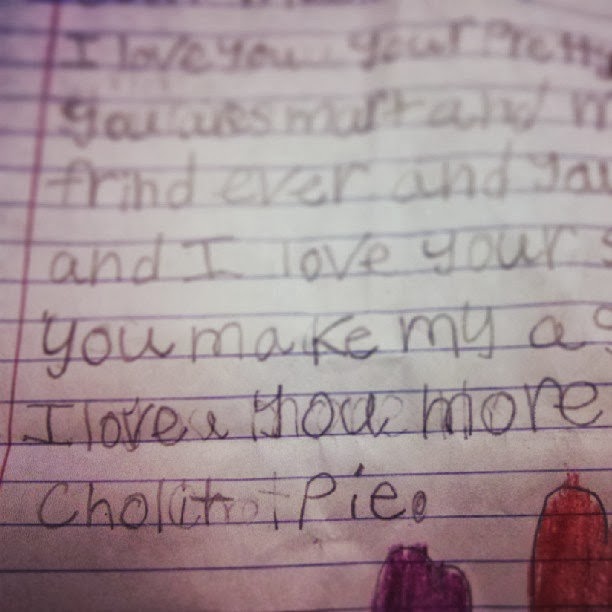 I love you your Pretty
you are smart and m
frind ever and you
and I love your s
you make my as
I love you more
Cholcitot Pie.